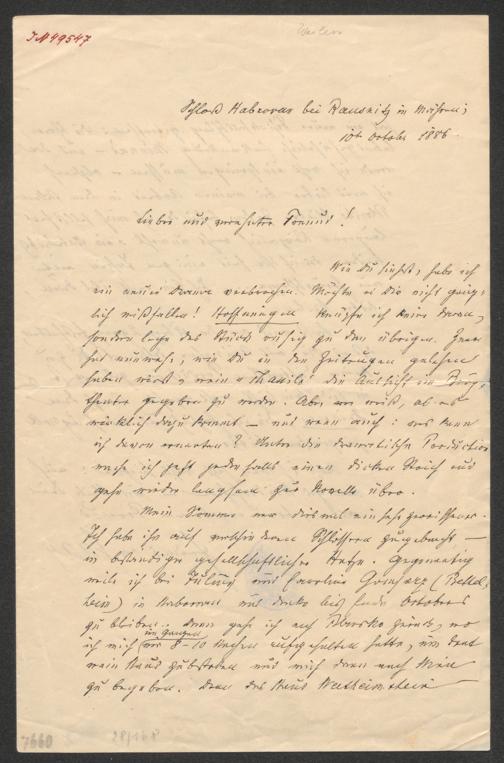 J.N 49547
Schloß Habrovan bei Rausnitz in Mähren;
10t October 1886.
Lieber und verehrter Freund!
Wie Du siehst, habe ich
ein neues Drama verbrochen. Möchte es Dir nicht gänz-
lich mißfallen! Hoffnungen knüpfe ich keine daran,
sondern lege das Stück ruhig zu den übrigen. Zwar
hat nunmehr, wie Du in den Zeitungen gelesen
haben wirst, mein „Thassilo" die Aussicht im Burg-
theater gegeben zu werden. Aber wer weiß, ob es
wirklich dazu kommt — und wenn auch: was kann
ich davon erwarten? Unter die dramatische Production
mache ich jetzt jedenfalls einen dicken Strich und
gehe wieder langsam zur Novelle über.
Mein Sommer war diesmal ein sehr zerrissener.
Ich habe ihn auf verschiedenen Schlössern zugebracht —
in beständiger gesellschaftlicher Hetze. Gegenwärtig
weile ich bei und Caroline Gomperz (Bettel-
heim) in Habrovan und denke bis Ende Octobers
zu bleiben. Dann gehe ich nach Blansko zurück, wo
ich mich im Ganzen nur 8-10 Wochen aufgehalten hatte, um dort
mein Haus zu bestellen und mich dann nach Wien
zu begeben. Denn das Haus Wertheimstein
7660